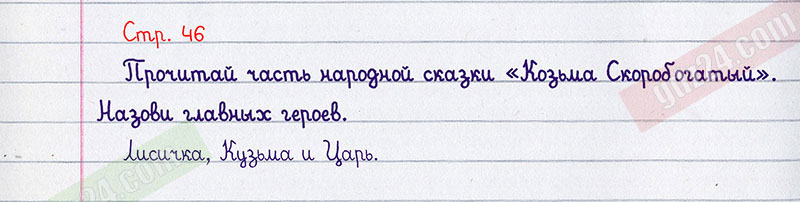 Стр. 46
Прочитай часть народной сказки «Козьма Скоробогатый».
Назови главных героев.
Лисичка, Кузьма и Царь.
gdz24.com
gdz24.com